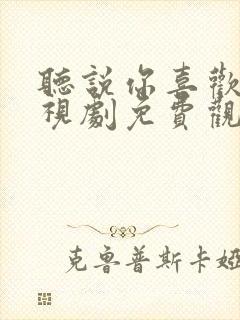 聽說你喜歡
視劇免費觀
克魯普斯卡婭